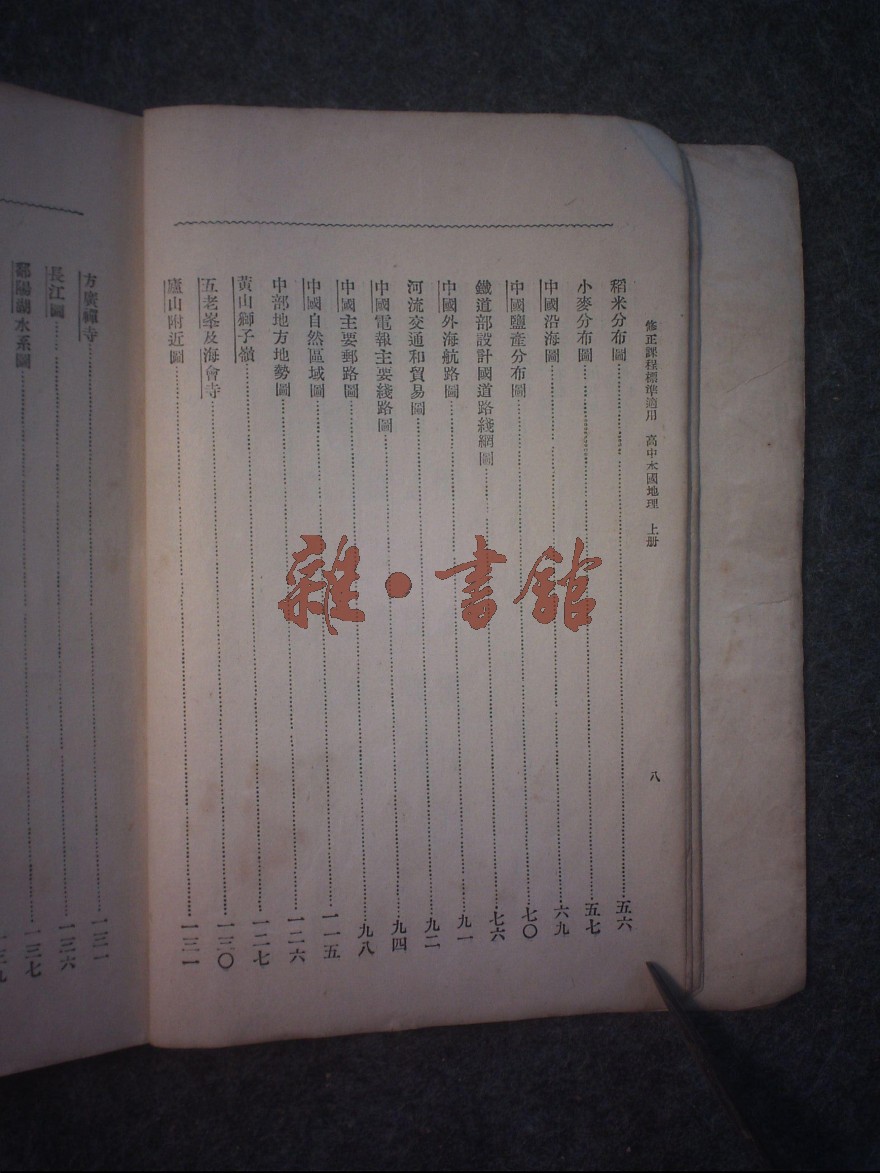 修正課程標準適用　高中本國地理　上册
八
稻米分布圖……五六
小麥分布圖……五七
中國沿海圖……六九
中國鹽產分布圖……七〇
鐵道部設計國道路綫網圖……七六
中國外海航路圖……九一
河流交通和貿易圖……九二
中國電報主要綫路圖……九四
中國主要郵路圖……九八
中國自然區域圖……一一五
中部地方地勢圖……一二六
黃山獅子嶺……一二七
五老峯及海會寺……一三〇
廬山附近圖……一三一
方廣禪寺……一三一
長江圖……一三六
鄱陽湖水系圖……一三七
雜·書館